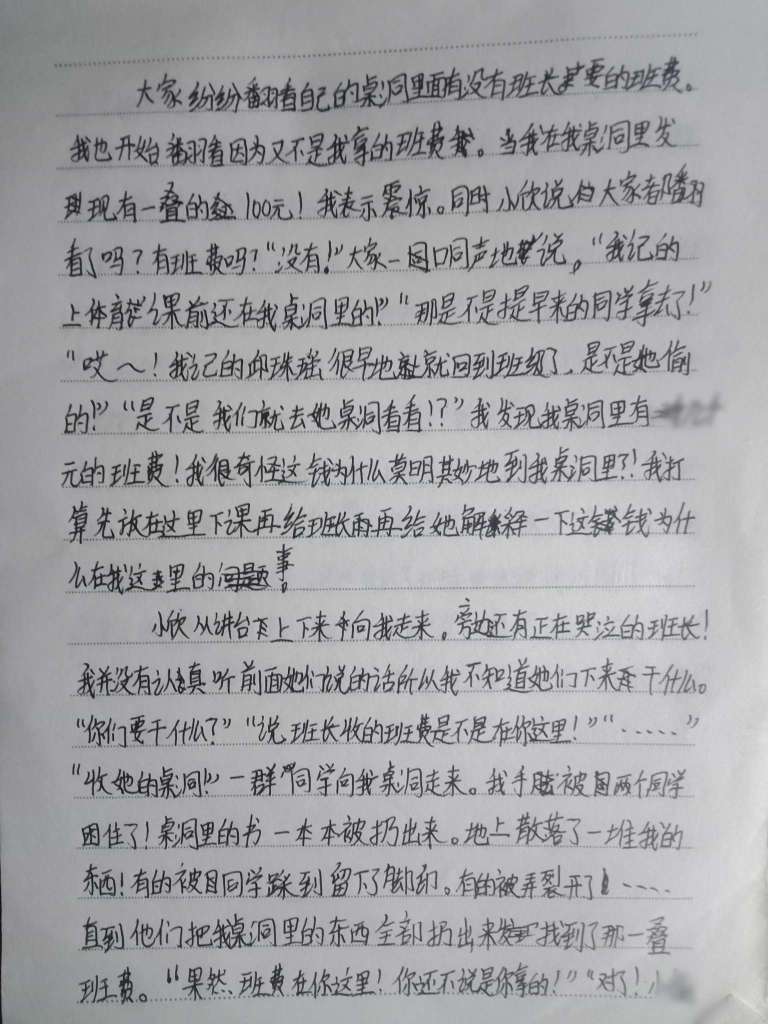 大家纷纷翻着自己的桌洞里面有没有班长要的班费。
我也开始翻着因为又不是我拿的班费。当我在我桌洞里发
现有一叠的红100元！我表示震惊。同时小欣说大家都翻
看了吗？有班费吗？“没有！”大家一口同声地说。“我记的
上体育课前还在我桌洞里的！”“那是不是提早来的同学拿去了！”
“哎～！我记的邱珠瑶很早地就回到班级了，是不是她偷
的！”“是不是我们就去她桌洞看看！？”我发现我桌洞里有
元的班费！我很奇怪这钱为什么莫明其妙地到我桌洞里？！我打
算先放在这里下课再给班长再给她解释一下这钱为什
么在我这里的事。
小欣从讲台上下来向我走来。旁边还有正在哭泣的班长！
我并没有认真听前面她们说的话所以我不知道她们下来干什么。
“你们要干什么？”“说，班长收的班费是不是在你这里！”“……”
“收她的桌洞！”一群同学向我桌洞走来。我手被两个同学
困住了！桌洞里的书一本本被扔出来。地上散落了一堆我的
东西！有的被同学踩到留下了脚印。有的被弄裂开了……
直到他们把我桌洞里的东西全部扔出来找到了那一叠
班费。“果然，班费在你这里！你还不说是你拿的！”“对了！